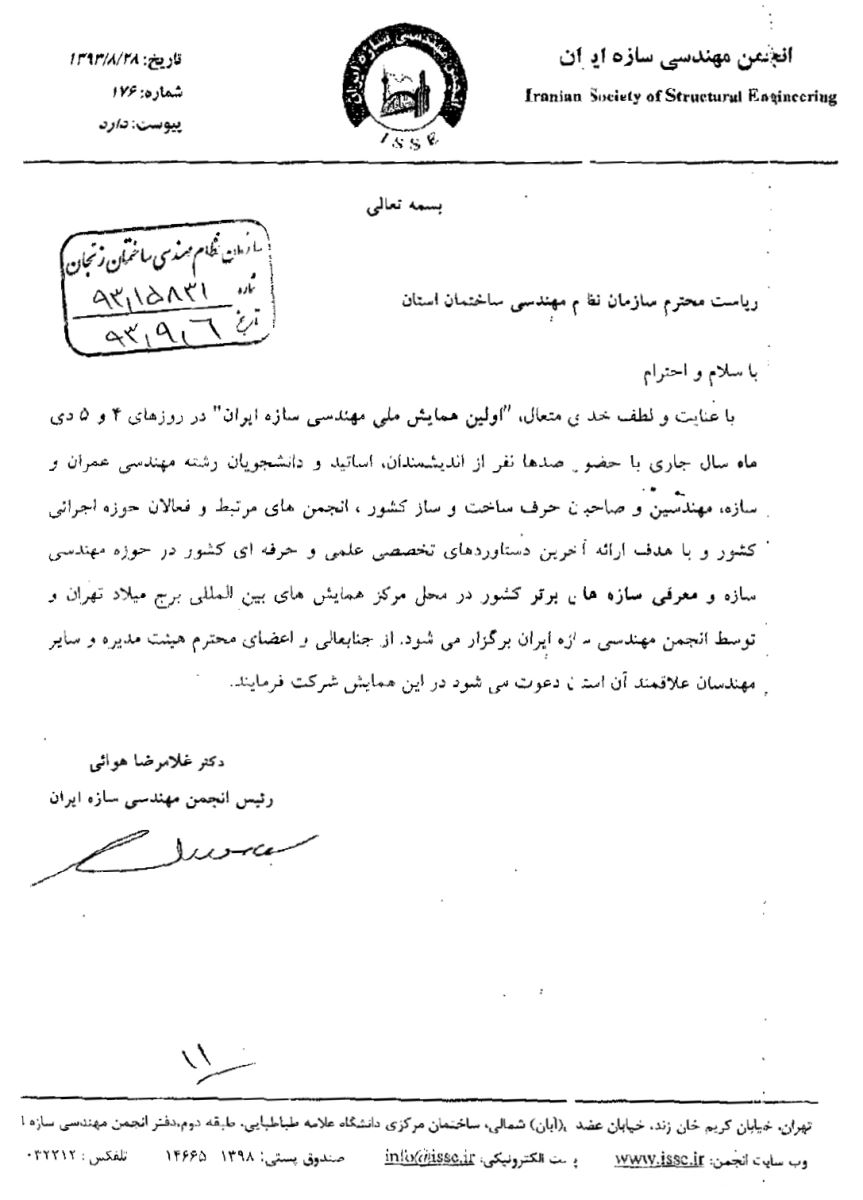 انجمن مهندسی سازه ایران
Iranian Society of Structural Engineering
انجمن مهندسی سازه ایران
ISSE
تاریخ: ۱۳۹۳/۸/۲۸
شماره: ۱۷۶
پیوست: دارد
بسمه تعالی
سازمان نظام مهندسی ساختمان زنجان
شماره ۹۳,۱۵۸۳۱
تاریخ ۹۳,۹,۶
ریاست محترم سازمان نظام مهندسی ساختمان استان
با سلام و احترام
با عنایت و لطف خدای متعال، "اولین همایش ملی مهندسی سازه ایران" در روزهای ۴ و ۵ دی
ماه سال جاری با حضور صدها نفر از اندیشمندان، اساتید و دانشجویان رشته مهندسی عمران و
سازه، مهندسین و صاحبان حرف ساخت و ساز کشور ، انجمن های مرتبط و فعالان حوزه اجرائی
کشور و با هدف ارائه آخرین دستاوردهای تخصصی علمی و حرفه ای کشور در حوزه مهندسی
سازه و معرفی سازه های برتر کشور در محل مرکز همایش های بین المللی برج میلاد تهران و
توسط انجمن مهندسی سازه ایران برگزار می شود. از جنابعالی و اعضای محترم هیئت مدیره و سایر
مهندسان علاقمند آن استان دعوت می شود در این همایش شرکت فرمایند.
دکتر غلامرضا هوائی
رئیس انجمن مهندسی سازه ایران
۱۱
تهران، خیابان کریم خان زند، خیابان عضدی(آبان) شمالی، ساختمان مرکزی دانشگاه علامه طباطبایی، طبقه دوم،دفتر انجمن مهندسی سازه ا
وب سایت انجمن: www.isse.ir پست الکترونیکی: info@isse.ir صندوق پستی: ۱۳۹۸ ۱۴۶۶۵ تلفکس :